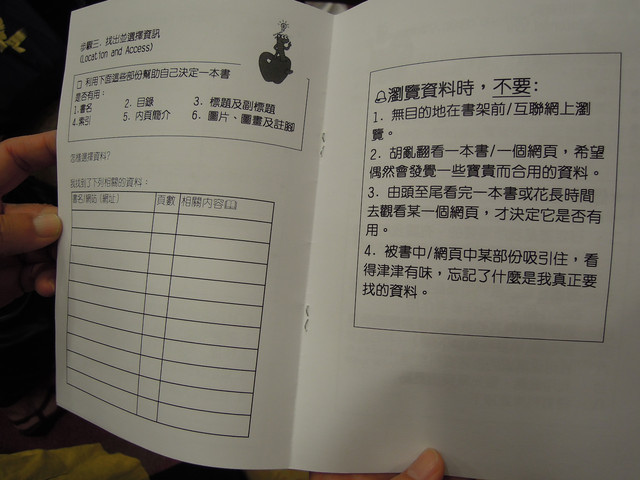 步驟三. 找出並選擇資訊
(Location and Access)
□ 利用下面這些部份幫助自己決定一本書
是否有用：
1. 書名 2. 目錄 3. 標題及副標題
4. 索引 5. 內頁簡介 6. 圖片、圖畫及註腳
怎樣選擇資料?
我找到了下列相關的資料：
書名/網站（網址） 頁數 相關內容
瀏覽資料時，不要：
1. 無目的地在書架前/互聯網上瀏
覽。
2. 胡亂翻看一本書/一個網頁，希望
偶然會發覺一些寶貴而合用的資料。
3. 由頭至尾看完一本書或花長時間
去觀看某一個網頁，才決定它是否有
用。
4. 被書中/網頁中某部份吸引住，看
得津津有味，忘記了什麼是我真正要
找的資料。